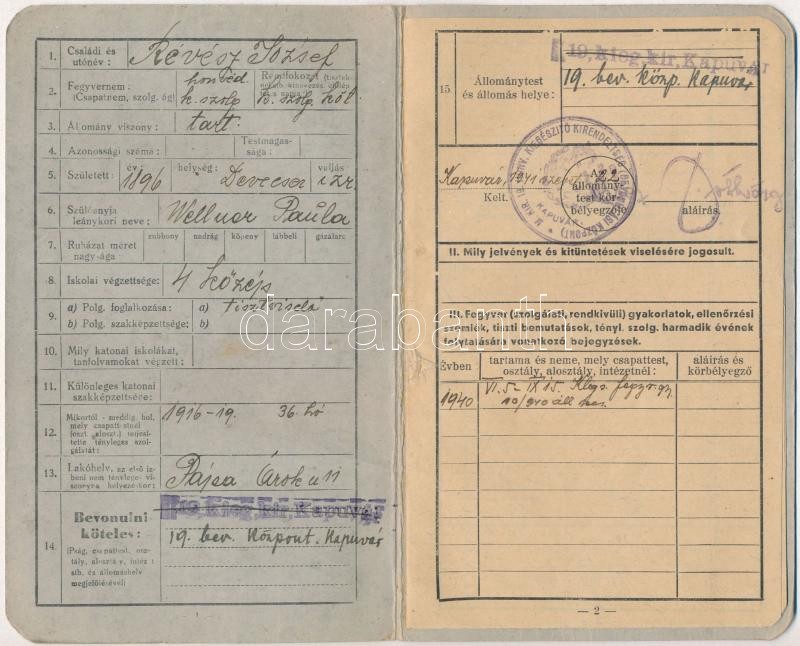 1. Családi és utónév: Révész József
2. Fegyvernem: (Csapatnem, szolg. ág) honvéd k. szolg. Rendfokozat (tiszteknél tb. kinevezés, címlap is) a napja: k. szolg. köt.
3. Állomány viszony: tart.
4. Azonossági száma: Testmagassága:
5. Született: év 1896 helység: Devecser vallás izr.
6. Szülőanyja leánykori neve: Wellner Paula
7. Ruházat méret nagysága zubbony nadrág köpeny lábbeli gázálarc
8. Iskolai végzettsége: 4 közép
9. a) Polg. foglalkozása: a) tisztviselő
b) Polg. szakképzettsége: b)
10. Mily katonai iskolákat, tanfolyamokat végzett:
11. Különleges katonai szakképzettsége:
12. Mikortól - meddig, hol, mely csapattestnél (oszt. aloszt.) teljesítette tényleges szolgálatát: 1916-19. 36. hó
13. Lakóhely, az első ízbeni nem tényleges viszonyra helyezéskor: Pápa Árok u 11
14. Bevonulni köteles: 19. kieg. kir. Kapuvár
19. bev. Központ. Kapuvár
(Pság, csapattest, osztály, alosztály, intézet stb. és állomáshely megjelölésével)
1
19. kieg. kir. Kapuvár
15. Állománytest és állomás helye: 19. bev. közp. Kapuvár
KIEGÉSZÍTŐ KIRENDELTSÉG
KAPUVÁR
Kapuvár, 1941 22
Kelt. Az állománytest körbélyegzője aláírás.
II. Mily jelvények és kitüntetések viselésére jogosult.
III. Fegyver (szolgálati, rendkívüli) gyakorlatok, ellenőrzési szemlék, tiszti bemutatások, tényl. szolg. harmadik évének folytatására vonatkozó bejegyzések.
Évben tartama és neme, mely csapattest, osztály, alosztály, intézetnél: aláírás és körbélyegző
1940 VI. 5- IX 15.
- 2 -
darabanth